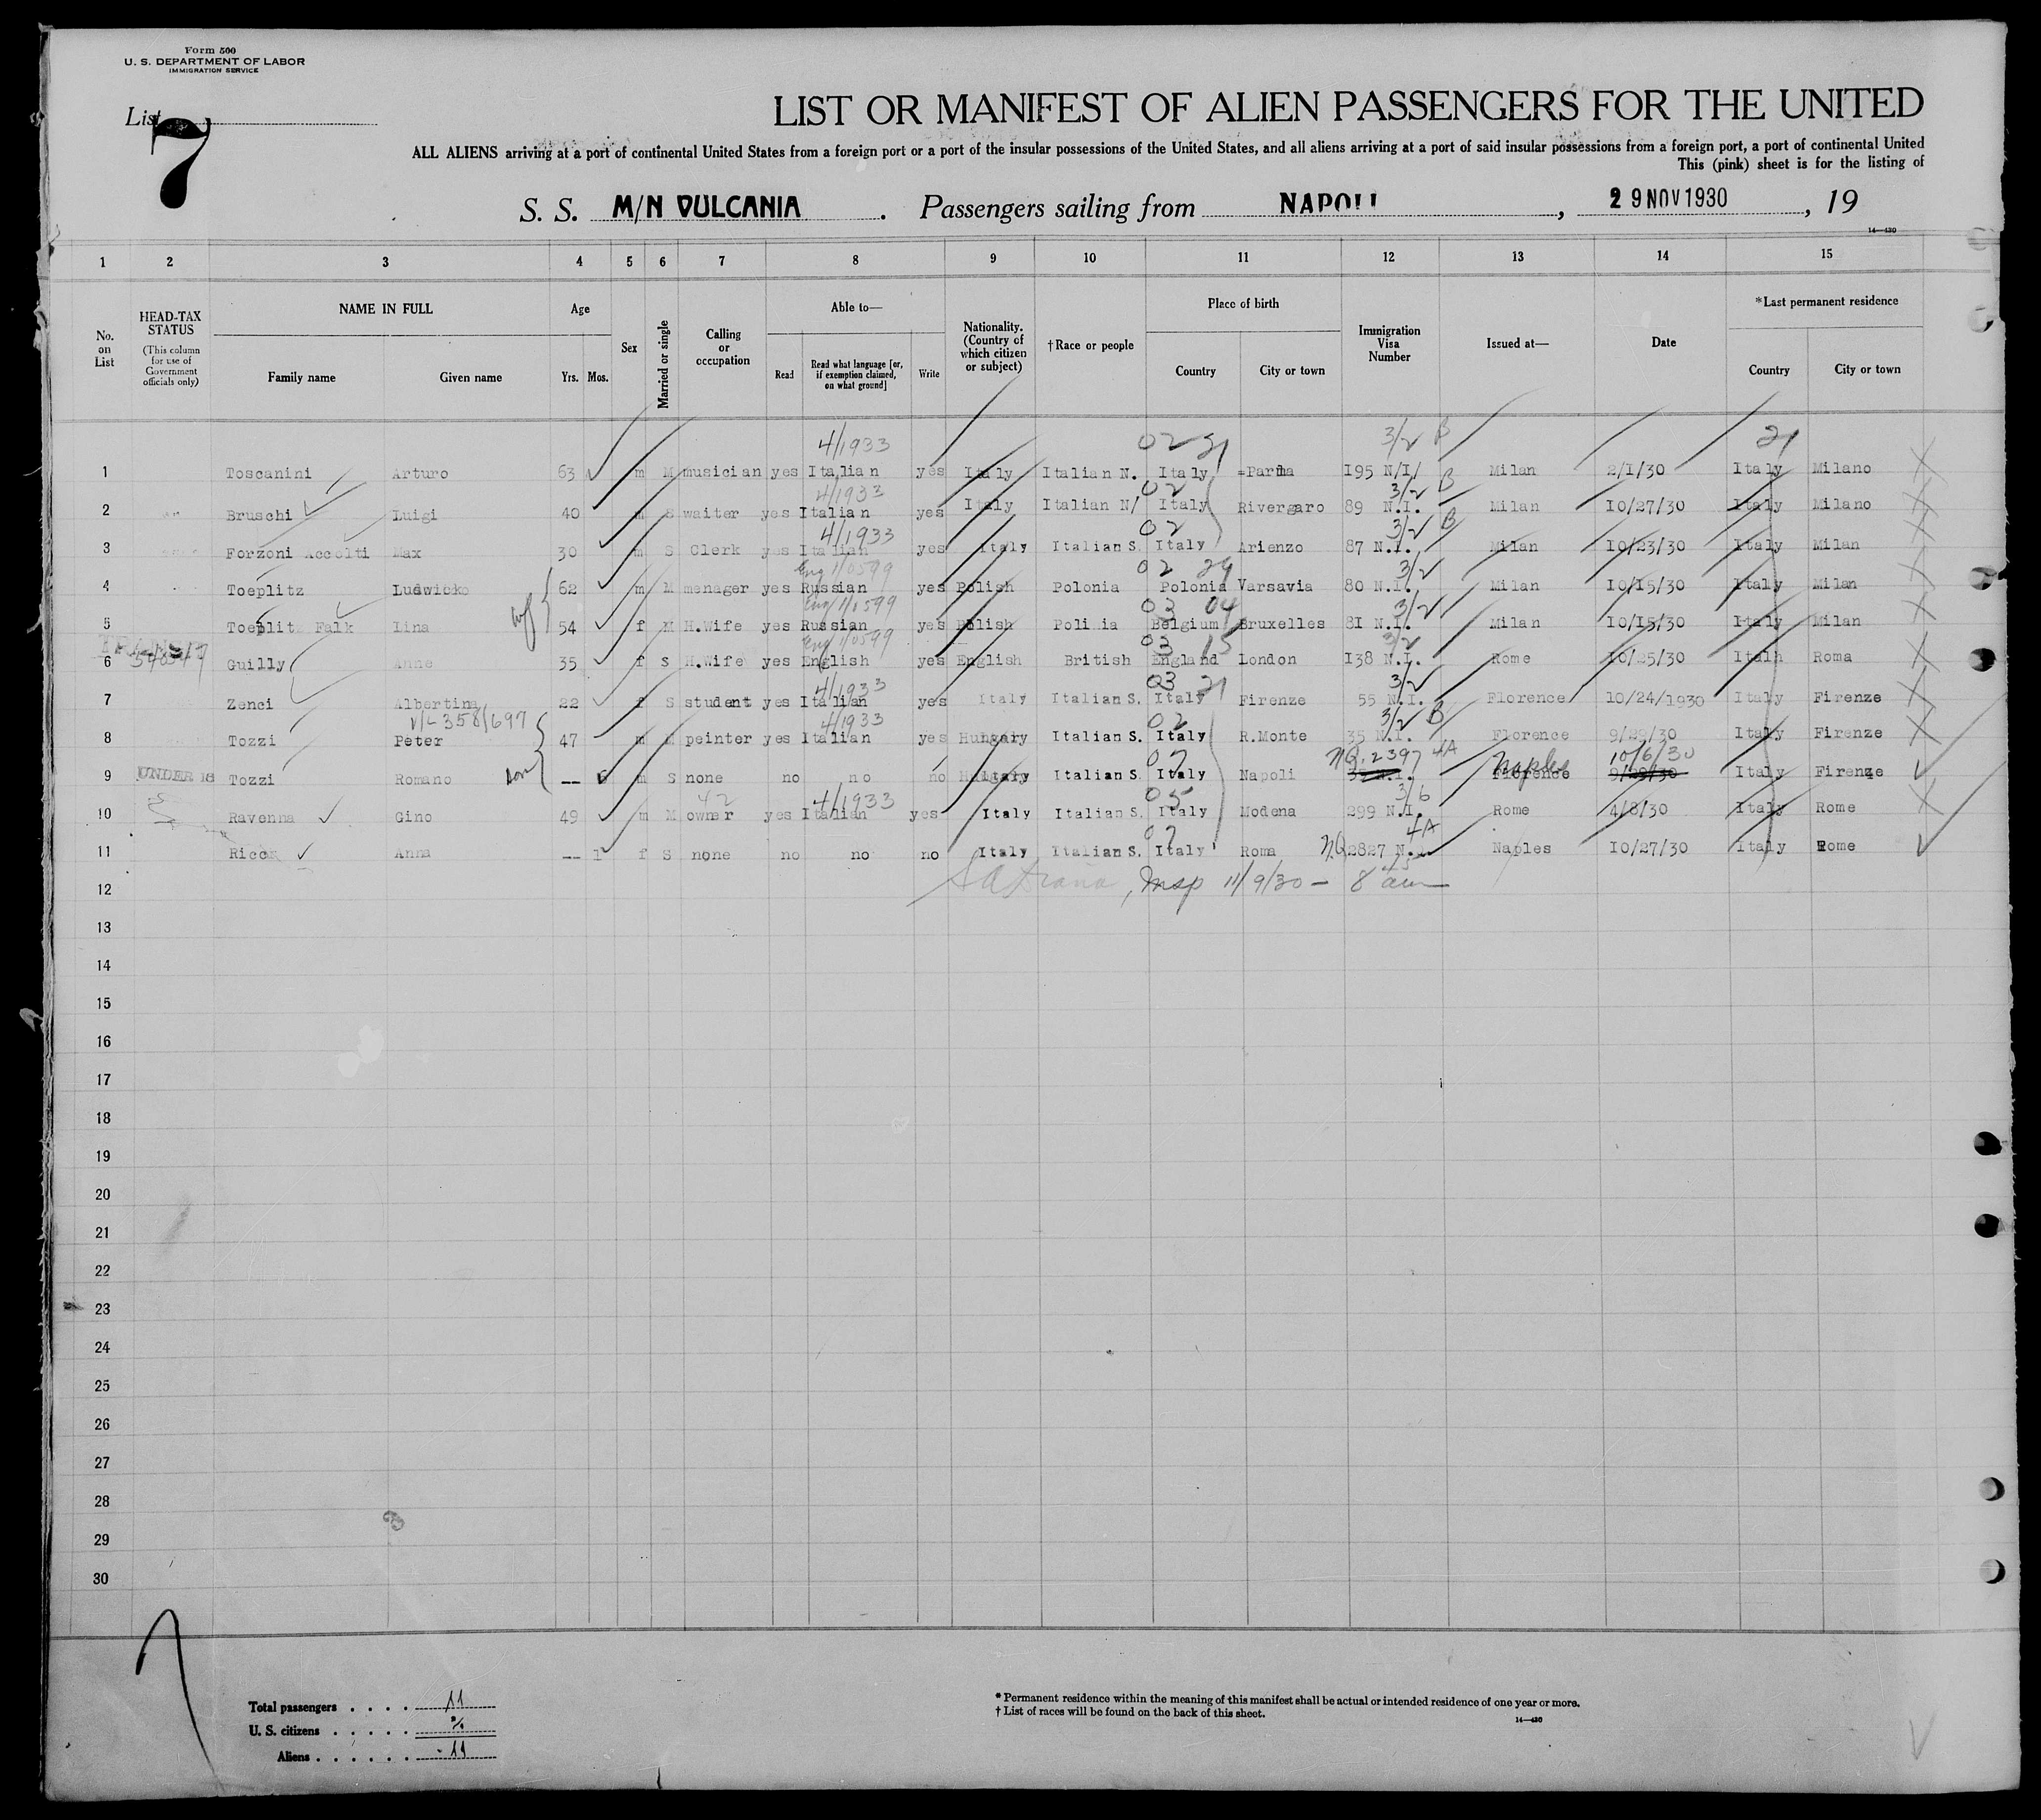 Form 500
U. S. DEPARTMENT OF LABOR
IMMIGRATION SERVICE
List 7
LIST OR MANIFEST OF ALIEN PASSENGERS FOR THE UNITED
ALL ALIENS arriving at a port of continental United States from a foreign port or a port of the insular possessions of the United States, and all aliens arriving at a port of said insular possessions from a foreign port, a port of continental United
This (pink) sheet is for the listing of
S. S. M/N VULCANIA. Passengers sailing from NAPOLI, 29 NOV 1930, 19
14—430
1 2 3 4 5 6 7 8 9 10 11 12 13 14 15
No. on List
HEAD-TAX STATUS (This column for use of Government officials only)
NAME IN FULL Family name Given name
Age Yrs. Mos.
Sex
Married or single
Calling or occupation
Able to— Read Read what language [or, if exemption claimed, on what ground] Write
Nationality. (Country of which citizen or subject)
†Race or people
Place of birth Country City or town
Immigration Visa Number
Issued at—
Date
*Last permanent residence Country City or town
4/1933 02 21 3/2 B 21
1 Toscanini Arturo 63 m M musician yes Italian yes Italy Italian N. Italy Parma 195 N/I/ Milan 2/1/30 Italy Milano
4/1933 02 3/2 B
2 Bruschi Luigi 40 m S waiter yes Italian yes Italy Italian N/ Italy Rivergaro 89 N.I. Milan 10/27/30 Italy Milano
4/1933 02 3/2 B
3 Forzoni Accolti Max 30 m S Clerk yes Italian yes Italy Italian S. Italy Arienzo 87 N.I. Milan 10/23/30 Italy Milan
Eng 1/0599 02 29 3/2
4 Toeplitz Ludwicko 62 m M menager yes Russian yes Polish Polonia Polonia Varsavia 80 N.I. Milan 10/15/30 Italy Milan
Eng 1/0599 03 04 3/2
5 Toeplitz Falk Lina wf 54 f M H.Wife yes Russian yes Polish Polinia Belgium Bruxelles 81 N.I. Milan 10/15/30 Italy Milan
Eng 1/0599 03 15 3/2
6 Guilly Anne 35 f S H.Wife yes English yes English British England London 138 N.I. Rome 10/25/30 Italh Roma
4/1933 03 21 3/2
7 Zenci Albertina 22 f S student yes Italian yes Italy Italian S. Italy Firenze 55 N.I. Florence 10/24/1930 Italy Firenze
V/L 358/697 4/1933 02 3/2 B
8 Tozzi Peter 47 m M peinter yes Italian yes Hungary Italian S. Italy R.Monte 35 N.I. Florence 9/29/30 Italy Firenze
07 NQ.2397 4A Naples 10/6/30
9 UNDER 16 Tozzi Romano son -- 6 m S none no no no Italy Italian S. Italy Napoli 35 N.I. Florence 9/29/30 Italy Firenze
42 4/1933 05 3/6
10 Ravenna Gino 49 m M owner yes Italian yes Italy Italian S. Italy Modena 299 N.I. Rome 4/8/30 Italy Rome
07 4A
11 Anna -- 1 f S none no no no Italy Italian S. Italy Roma NQ 2827 Naples 10/27/30 Italy Rome
12 Insp 11/9/30 — 8 am
13
14
15
16
17
18
19
20
21
22
23
24
25
26
27
28
29
30
Total passengers . . . . 11
U. S. citizens . . . . .
Aliens . . . . . . 11
* Permanent residence within the meaning of this manifest shall be actual or intended residence of one year or more.
† List of races will be found on the back of this sheet.
14—430